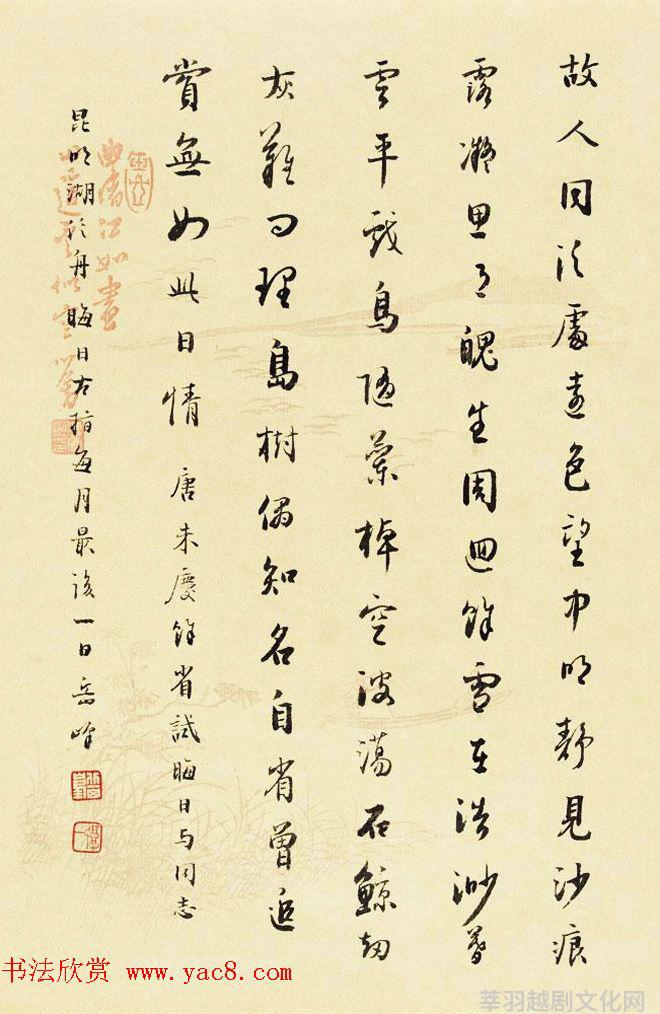 故人同泛處遠色望中明靜見沙痕
露凝思月魄生周迴餘雪在浩渺暮
雲平戲鳥隨蘭棹空波蕩石鯨劫
灰難問理島樹偶知名自省曾追
賞無如此日情 唐朱慶餘省試晦日与同志
昆明湖泛舟 晦日古指每月最後一日 岳峰
书法欣赏 www.yac8.com
莘羽越剧文化网